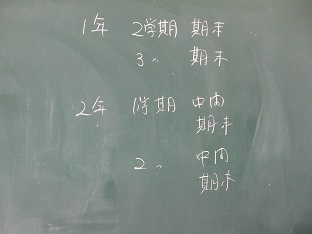 1年 2学期 期末
3〃 期末
2年 1学期 中間
期末
2〃 中間
期末